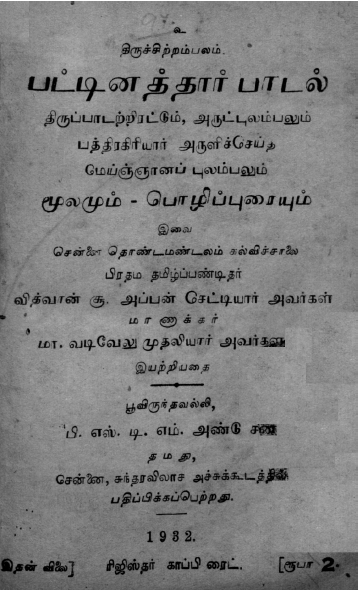 உ
திருச்சிற்றம்பலம்.
பட்டினத்தார் பாடல்
திருப்பாடற்றிரட்டும், அருட்புலம்பலும்
பத்திரகிரியார் அருளிச்செய்த
மெய்ஞ்ஞானப் புலம்பலும்
மூலமும் - பொழிப்புரையும்
இவை
சென்னை தொண்டமண்டலம் கல்விச்சாலை
பிரதம தமிழ்ப்பண்டிதர்
வித்வான் சூ. அப்பன் செட்டியார் அவர்கள்
மாணாக்கர்
மா. வடிவேலு முதலியார் அவர்கள்
இயற்றியதை
பூவிருந்தவல்லி,
பி. எஸ். டி. எம். அண்டு சன்
தமது,
சென்னை, சுந்தரவிலாச அச்சுக்கூடத்தில்
பதிப்பிக்கப்பெற்றது.
1932.
இதன் விலை] ரிஜிஸ்தர் காப்பி ரைட். [ரூபா 2-